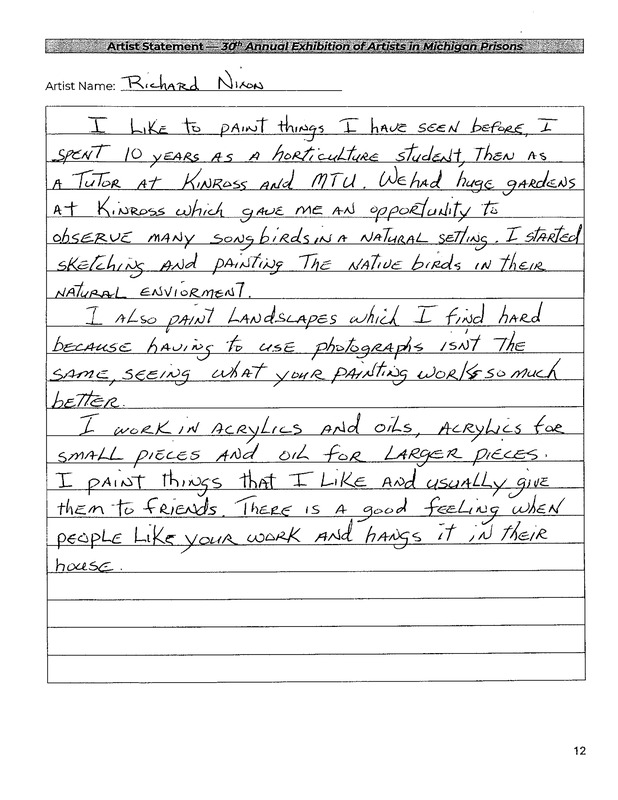 Artist Statement — 30th Annual Exhibition of Artists in Michigan Prisons
Artist Name: Richard Nixon
I Like to paint things I have seen before, I
spent 10 years as a horticulture student, Then as
a Tutor at Kinross and MTU. We had huge gardens
at Kinross which gave me an opportunity to
observe many songbirds in a natural setting. I started
sketching and painting The native birds in their
natural enviorment.
I also paint landscapes which I find hard
because having to use photographs isn't The
same, seeing what your painting works so much
better.
I work in acrylics and oils, acrylics for
small pieces and oil for larger pieces.
I paint things that I like and usually give
them to friends. There is a good feeling when
people like your work and hangs it in their
house.
12